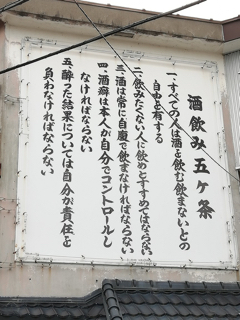 酒飲み五ヶ条
一、すべての人は酒を飲む飲まないとの
自由を有する
二、飲みたくない人に飲めとすすめてはならない
三、酒は常に自腹で飲まなければならない
四、酒癖は本人が自分でコントロールし
なければならない
五、酔った結果については自分が責任を
負わなければならない